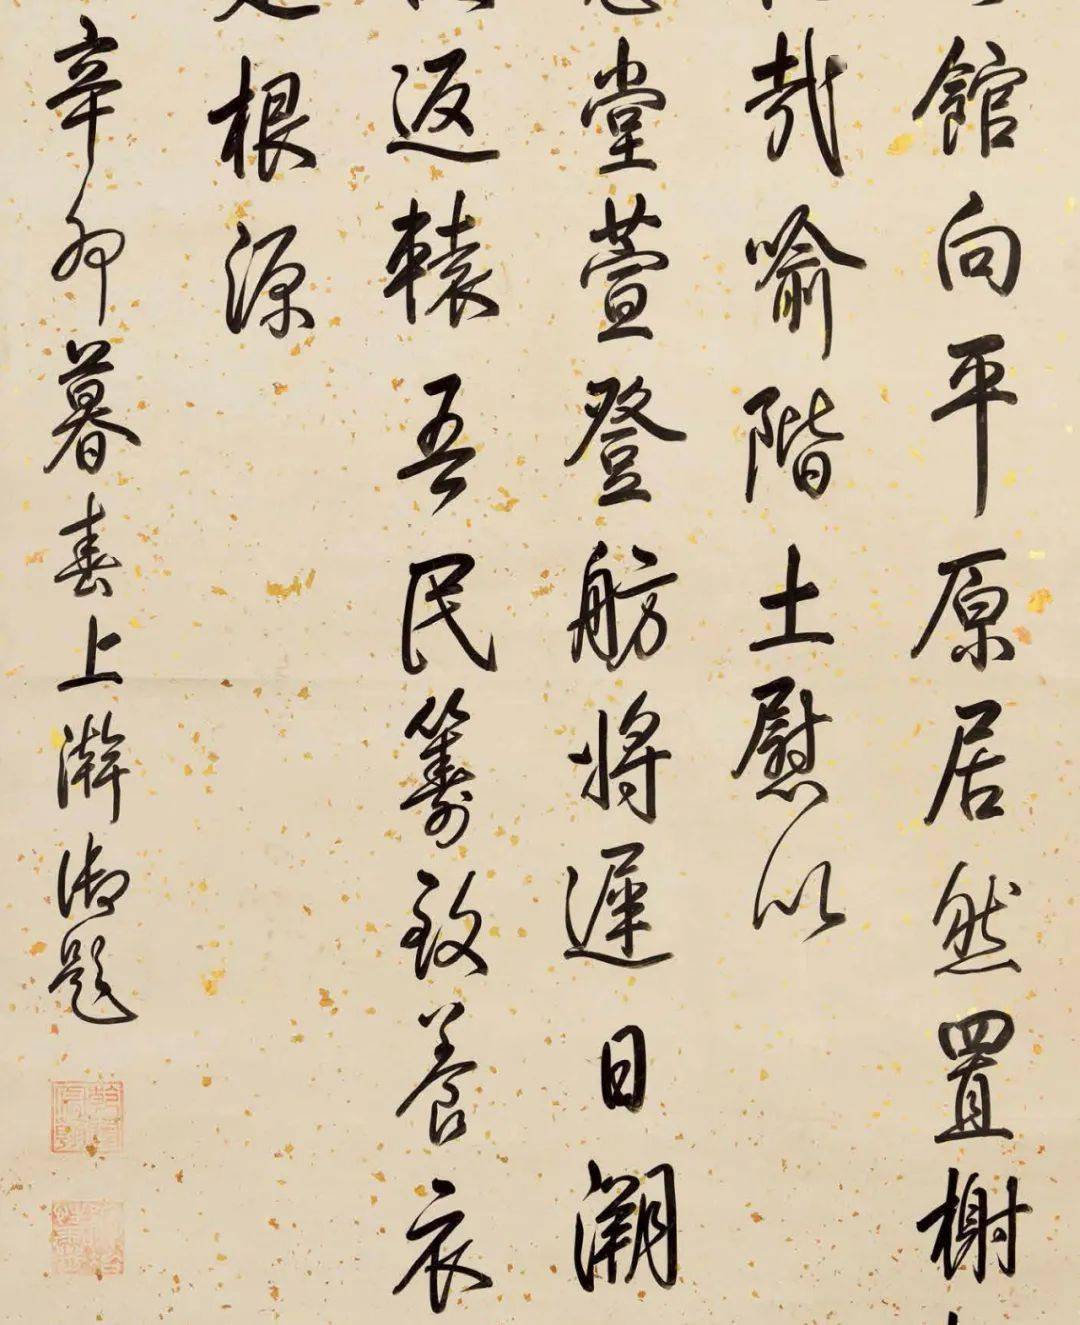 館向平原居然置榭
哉喻階土慰以
堂萱登舫將遲日溯
返轅吾民籌致養衣
根源
辛卯暮春上澣御題